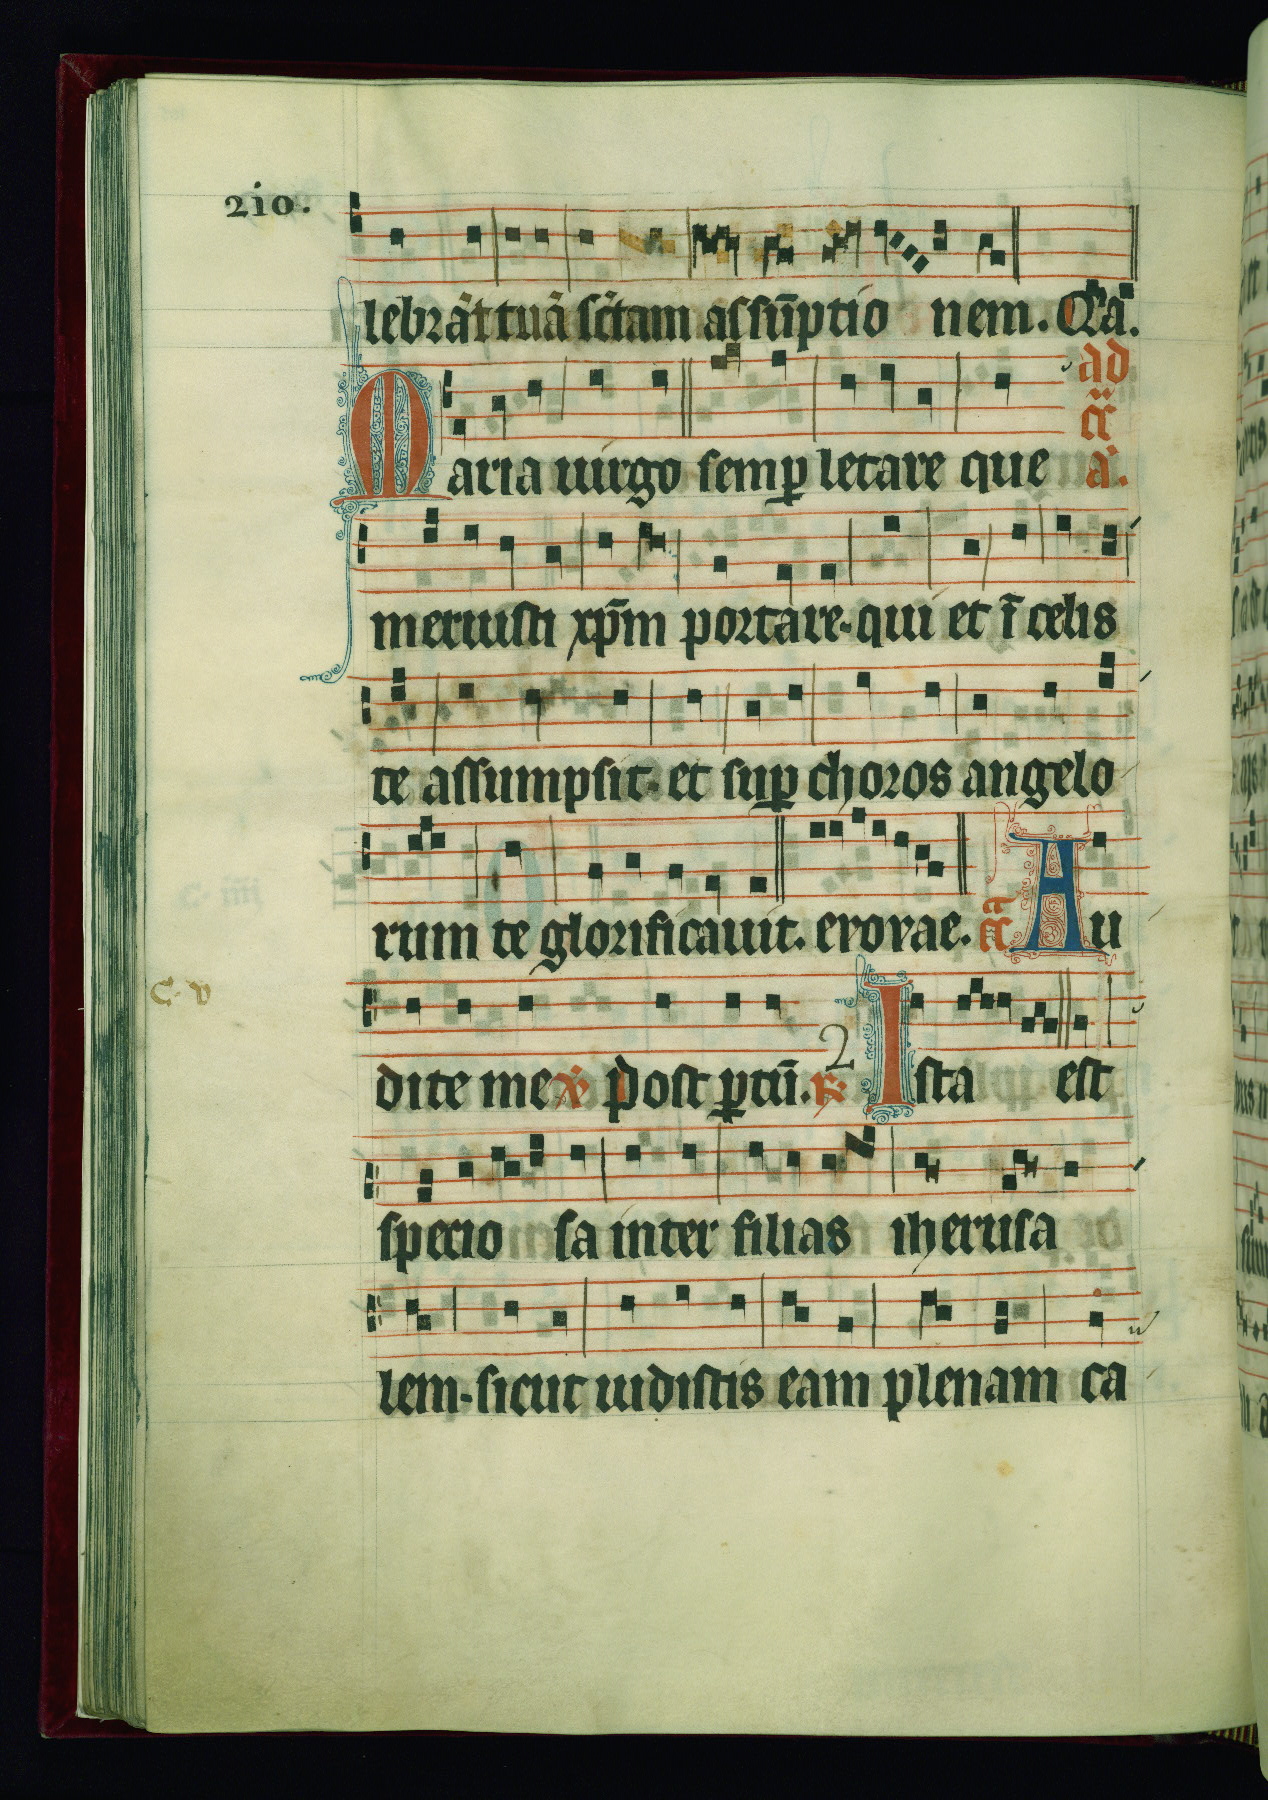 210.
lebrāt tuā sc̄tam assūptio nem. Q̄a.
Maria uirgo semꝑ letare que ad
cā.
meruisti xp̄m portare. qui et ī celis
te assumpsit. et suꝑ choros angelo
rum te glorificauit. evovae. Au
C. v
dite me ℣ Post ꝑtū. ℟ 2 Ista est
specio sa inter filias iherusa
lem. sicut uidistis eam plenam ca